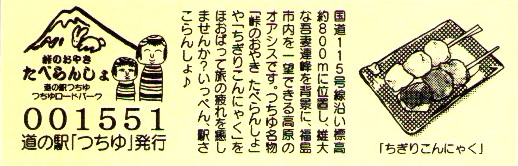 峠のおやき
たべらんしょ
道の駅つちゆ
つちゆロードパーク
001551
道の駅「つちゆ」発行
国道115号線沿い標高
約800mに位置し、雄大
な吾妻連峰を背景に、福島
市内を一望できる高原の
オアシスです。つちゆ名物
「峠のおやき たべらんしょ」
や「ちぎりこんにゃく」を
ほおばって旅の疲れを癒し
ませんか?いっぺん、駅さ
こらんしょ♪
「ちぎりこんにゃく」